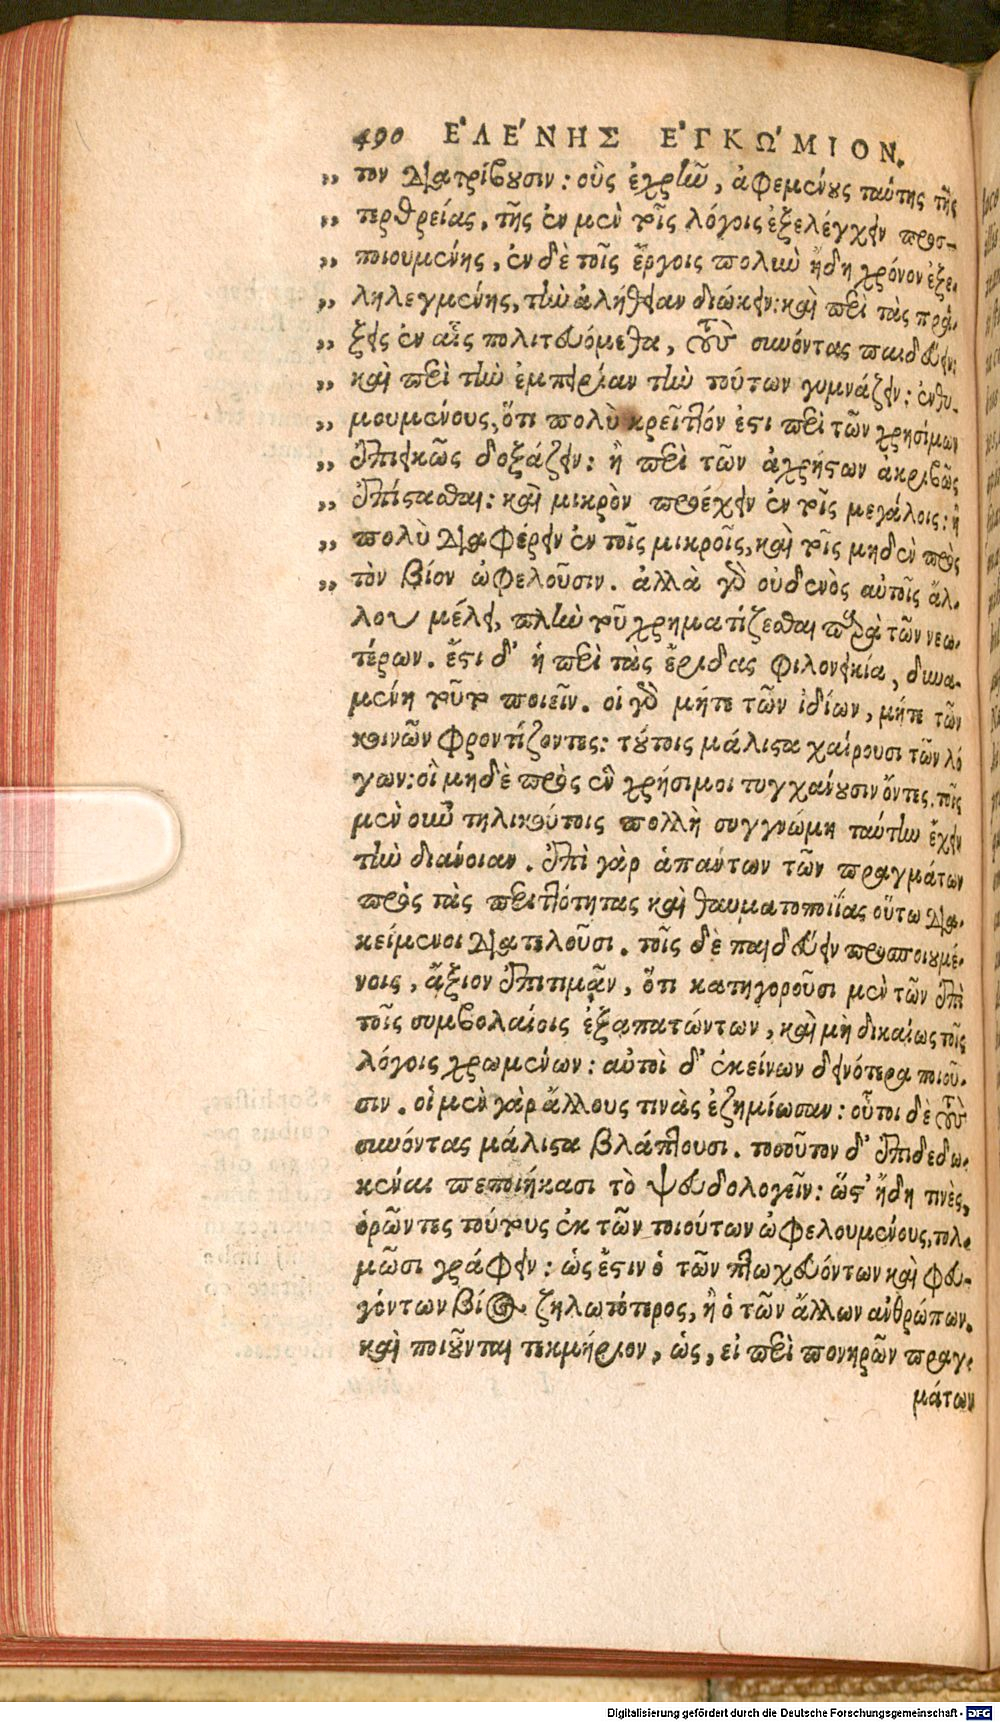 490 ΕΛΕ΄ΝΗΣ ΕΓΚΩ΄ΜΙΟΝ.
„ τον διατρίβουσιν: οὓς ἐχρῆν, ἀφεμένους ταύτης τῆς
„ τερθρείας, τῆς ἐν μὲν τοῖς λόγοις ἐξελέγχειν προσ-
„ ποιουμένης, ἐν δὲ τοῖς ἔργοις πολὺν ἤδη χρόνον ἐξε-
„ ληλεγμένης, τὴν ἀλήθειαν διώκειν: καὶ περὶ τὰς πρά-
„ ξεις ἐν αἷς πολιτευόμεθα, τοὺς συνόντας παιδεύειν:
„ καὶ περὶ τὴν ἐμπειρίαν τὴν τούτων γυμνάζειν: ἐνθυ-
„ μουμένους, ὅτι πολὺ κρεῖττόν ἐστι περὶ τῶν χρησίμων
„ ἐπιεικῶς δοξάζειν: ἢ περὶ τῶν ἀχρήστων ἀκριβῶς
„ ἐπίστασθαι: καὶ μικρὸν προέχειν ἐν τοῖς μεγάλοις: ἢ
„ πολὺ διαφέρειν ἐν τοῖς μικροῖς, καὶ τοῖς μηδὲν πρὸς
„ τὸν βίον ὠφελοῦσιν. ἀλλὰ γὰρ οὐδενὸς αὐτοῖς ἄλ-
λου μέλει, πλὴν τοῦ χρηματίζεσθαι παρὰ τῶν νεω-
τέρων. ἔστι δ' ἡ περὶ τὰς ἔριδας φιλονεικία, δυνα-
μένη τοῦτο ποιεῖν. οἱ γὰρ μήτε τῶν ἰδίων, μήτε τῶν
κοινῶν φροντίζοντες: τούτοις μάλιστα χαίρουσι τῶν λό
γων: οἳ μηδὲ πρὸς ἓν χρήσιμοι τυγχάνουσιν ὄντες. τοῖς
μὲν οὖν τηλικούτοις πολλὴ συγγνώμη ταύτην ἔχειν
τὴν διάνοιαν. ἐπὶ γὰρ ἁπάντων τῶν πραγμάτων
πρὸς τὰς περιττότητας καὶ θαυματοποιΐας οὕτω δια-
κείμενοι διατελοῦσι. τοῖς δὲ παιδεύειν προσποιουμέ-
νοις, ἄξιον ἐπιτιμᾶν, ὅτι κατηγοροῦσι μὲν τῶν ἐπὶ
τοῖς συμβολαίοις ἐξαπατώντων, καὶ μὴ δικαίως τοῖς
λόγοις χρωμένων: αὐτοὶ δ' ἐκείνων δεινότερα ποιοῦ-
σιν. οἱ μὲν γὰρ ἄλλους τινὰς ἐζημίωσαν: οὗτοι δὲ τοὺς
συνόντας μάλιστα βλάπτουσι. τοσοῦτον δ' ἐπιδεδω-
κέναι πεποιήκασι τὸ ψευδολογεῖν: ὥστ' ἤδη τινὲς,
ὁρῶντες τούτους ἐκ τῶν τοιούτων ὠφελουμένους, τολ-
μῶσι γράφειν: ὡς ἔστιν ὁ τῶν πτωχευόντων καὶ φευ-
γόντων βίος ζηλωτότερος, ἢ ὁ τῶν ἄλλων ἀνθρώπων.
καὶ ποιοῦνται τεκμήριον, ὡς, εἰ περὶ πονηρῶν πραγ-
μάτων
Digitalisierung gefördert durch die Deutsche Forschungsgemeinschaft - DFG